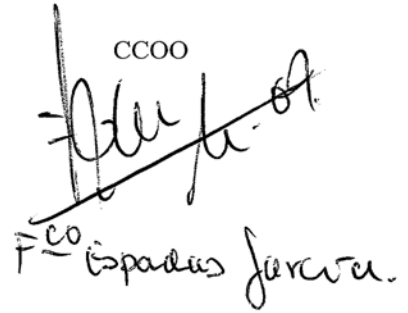 CCOO
Fco Espadas García.